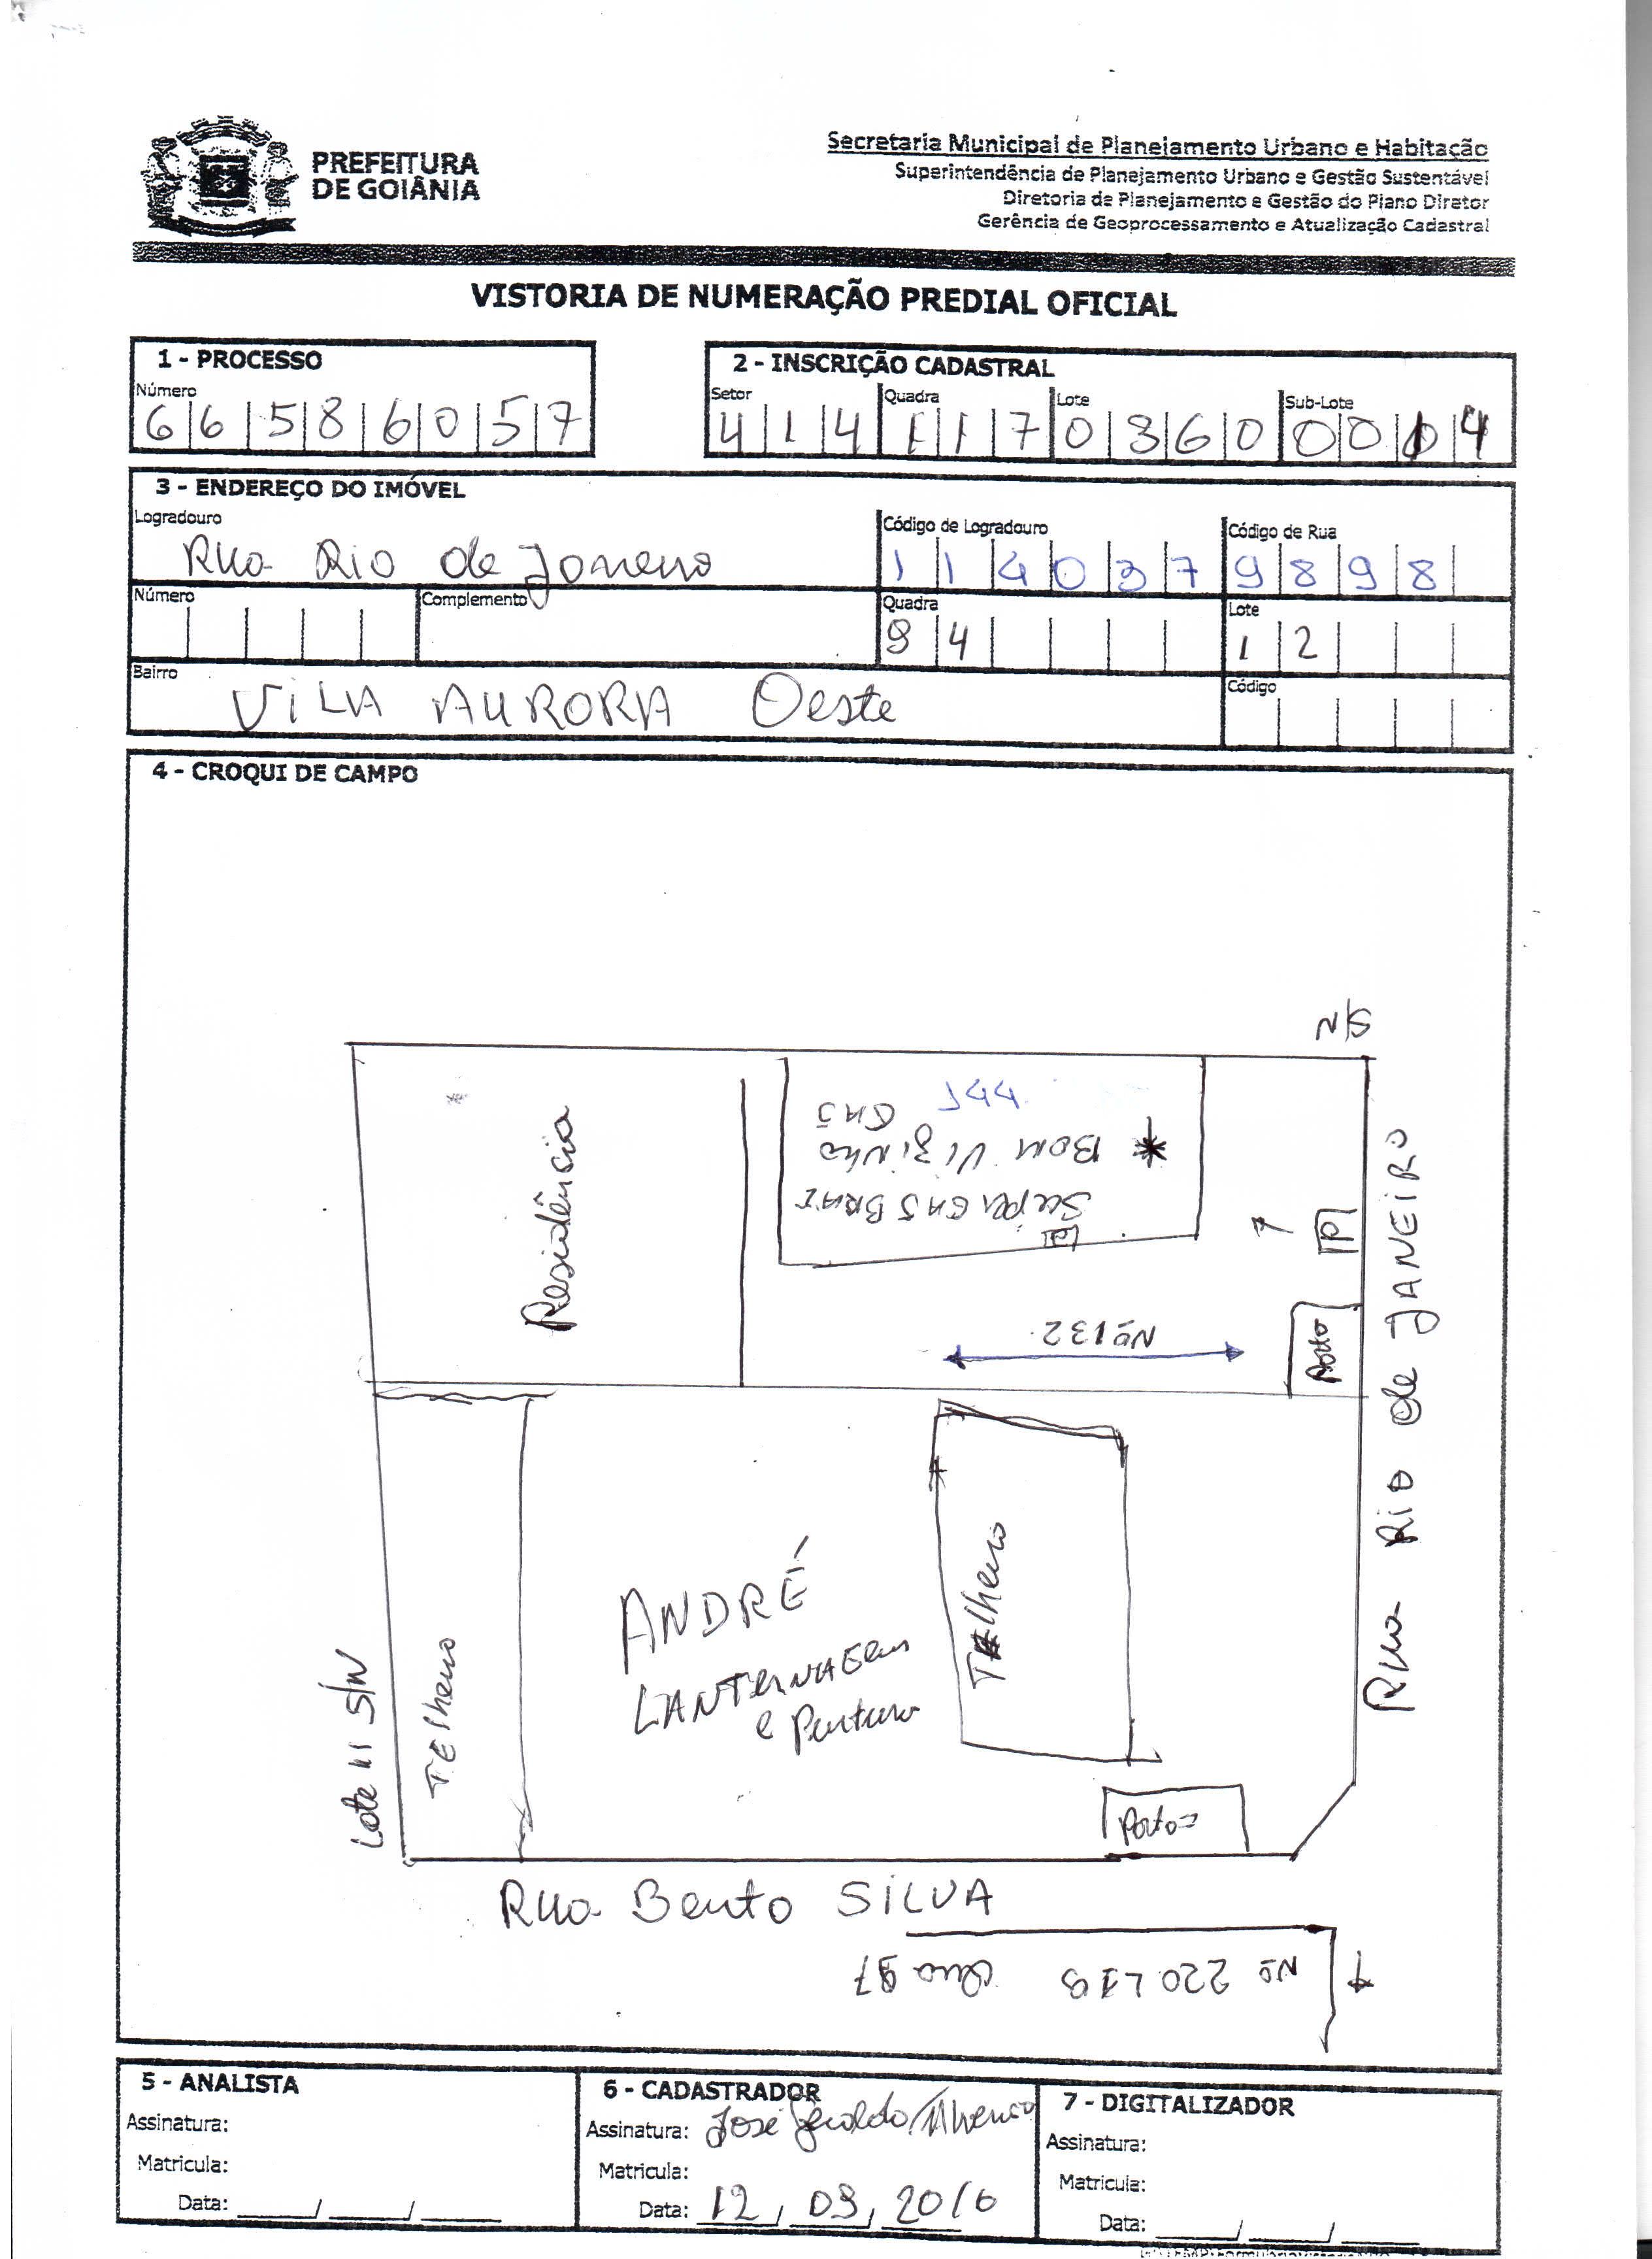 PREFEITURA
DE GOIÂNIA
Secretaria Municipal de Planejamento Urbano e Habitação
Superintendência de Planejamento Urbano e Gestão Sustentável
Diretoria de Planejamento e Gestão do Plano Diretor
Gerência de Geoprocessamento e Atualização Cadastral
VISTORIA DE NUMERAÇÃO PREDIAL OFICIAL
1 - PROCESSO
Número
66586057
2 - INSCRIÇÃO CADASTRAL
Setor Quadra Lote Sub-Lote
414 117 0360 0004
3 - ENDEREÇO DO IMÓVEL
Logradouro Código de Logradouro Código de Rua
Rua Rio de Janeiro 114037 9898
Número Complemento Quadra Lote
94 12
Bairro Código
VILA AURORA Oeste
4 - CROQUI DE CAMPO
S/N
144
GAS
BOM VIZINHO
Super GAS BRAS
Residência
7
P
Nº 132
Portão
Rua Rio de JANEIRO
Telheiro
ANDRÉ
LANTERNAGEM
e Pintura
TElheiro
Lote 11 S/N
Portão
Rua Bento SILVA
Nº 220 L19 Qua 97
5 - ANALISTA
Assinatura:
Matricula:
Data: ____/____/____
6 - CADASTRADOR
Assinatura: José Geraldo
Matricula:
Data: 12/09/2016
7 - DIGITALIZADOR
Assinatura:
Matricula:
Data: ____/____/____